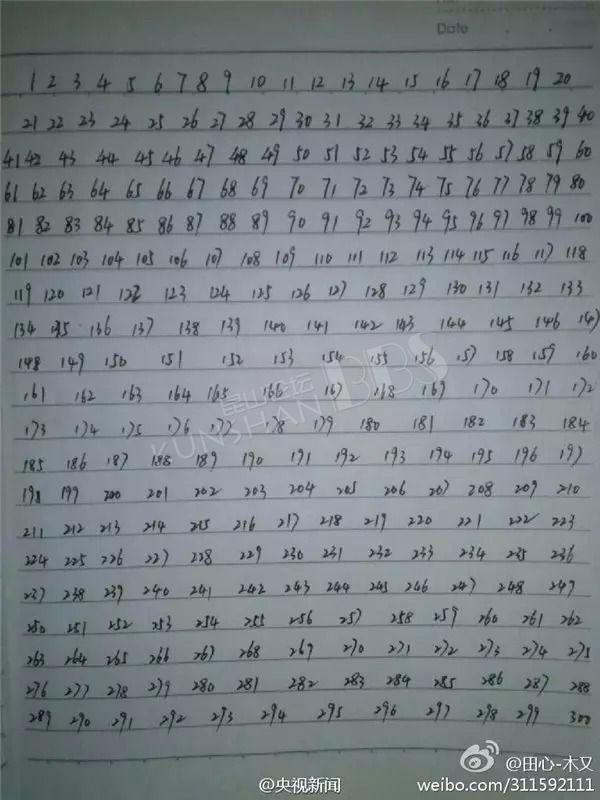 Date
1 2 3 4 5 6 7 8 9 10 11 12 13 14 15 16 17 18 19 20
21 22 23 24 25 26 27 28 29 30 31 32 33 34 35 36 37 38 39 40
41 42 43 44 45 46 47 48 49 50 51 52 53 54 55 56 57 58 59 60
61 62 63 64 65 66 67 68 69 70 71 72 73 74 75 76 77 78 79 80
81 82 83 84 85 86 87 88 89 90 91 92 93 94 95 96 97 98 99 100
101 102 103 104 105 106 107 108 109 110 111 112 113 114 115 116 117 118
119 120 121 122 123 124 125 126 127 128 129 130 131 132 133
134 135 136 137 138 139 140 141 142 143 144 145 146 147
148 149 150 151 152 153 154 155 156 157 158 159 160
161 162 163 164 165 166 167 168 169 170 171 172
173 174 175 176 177 178 179 180 181 182 183 184
185 186 187 188 189 190 191 192 193 194 195 196 197
198 199 200 201 202 203 204 205 206 207 208 209 210
211 212 213 214 215 216 217 218 219 220 221 222 223
224 225 226 227 228 229 230 231 232 233 234 235 236
237 238 239 240 241 242 243 244 245 246 247 248 249
250 251 252 253 254 255 256 257 258 259 260 261 262
263 264 265 266 267 268 269 270 271 272 273 274 275
276 277 278 279 280 281 282 283 284 285 286 287 288
289 290 291 292 293 294 295 296 297 298 299 300
昆山论坛 BBS
KUNSHAN
@央视新闻
@田心-木又
weibo.com/311592111